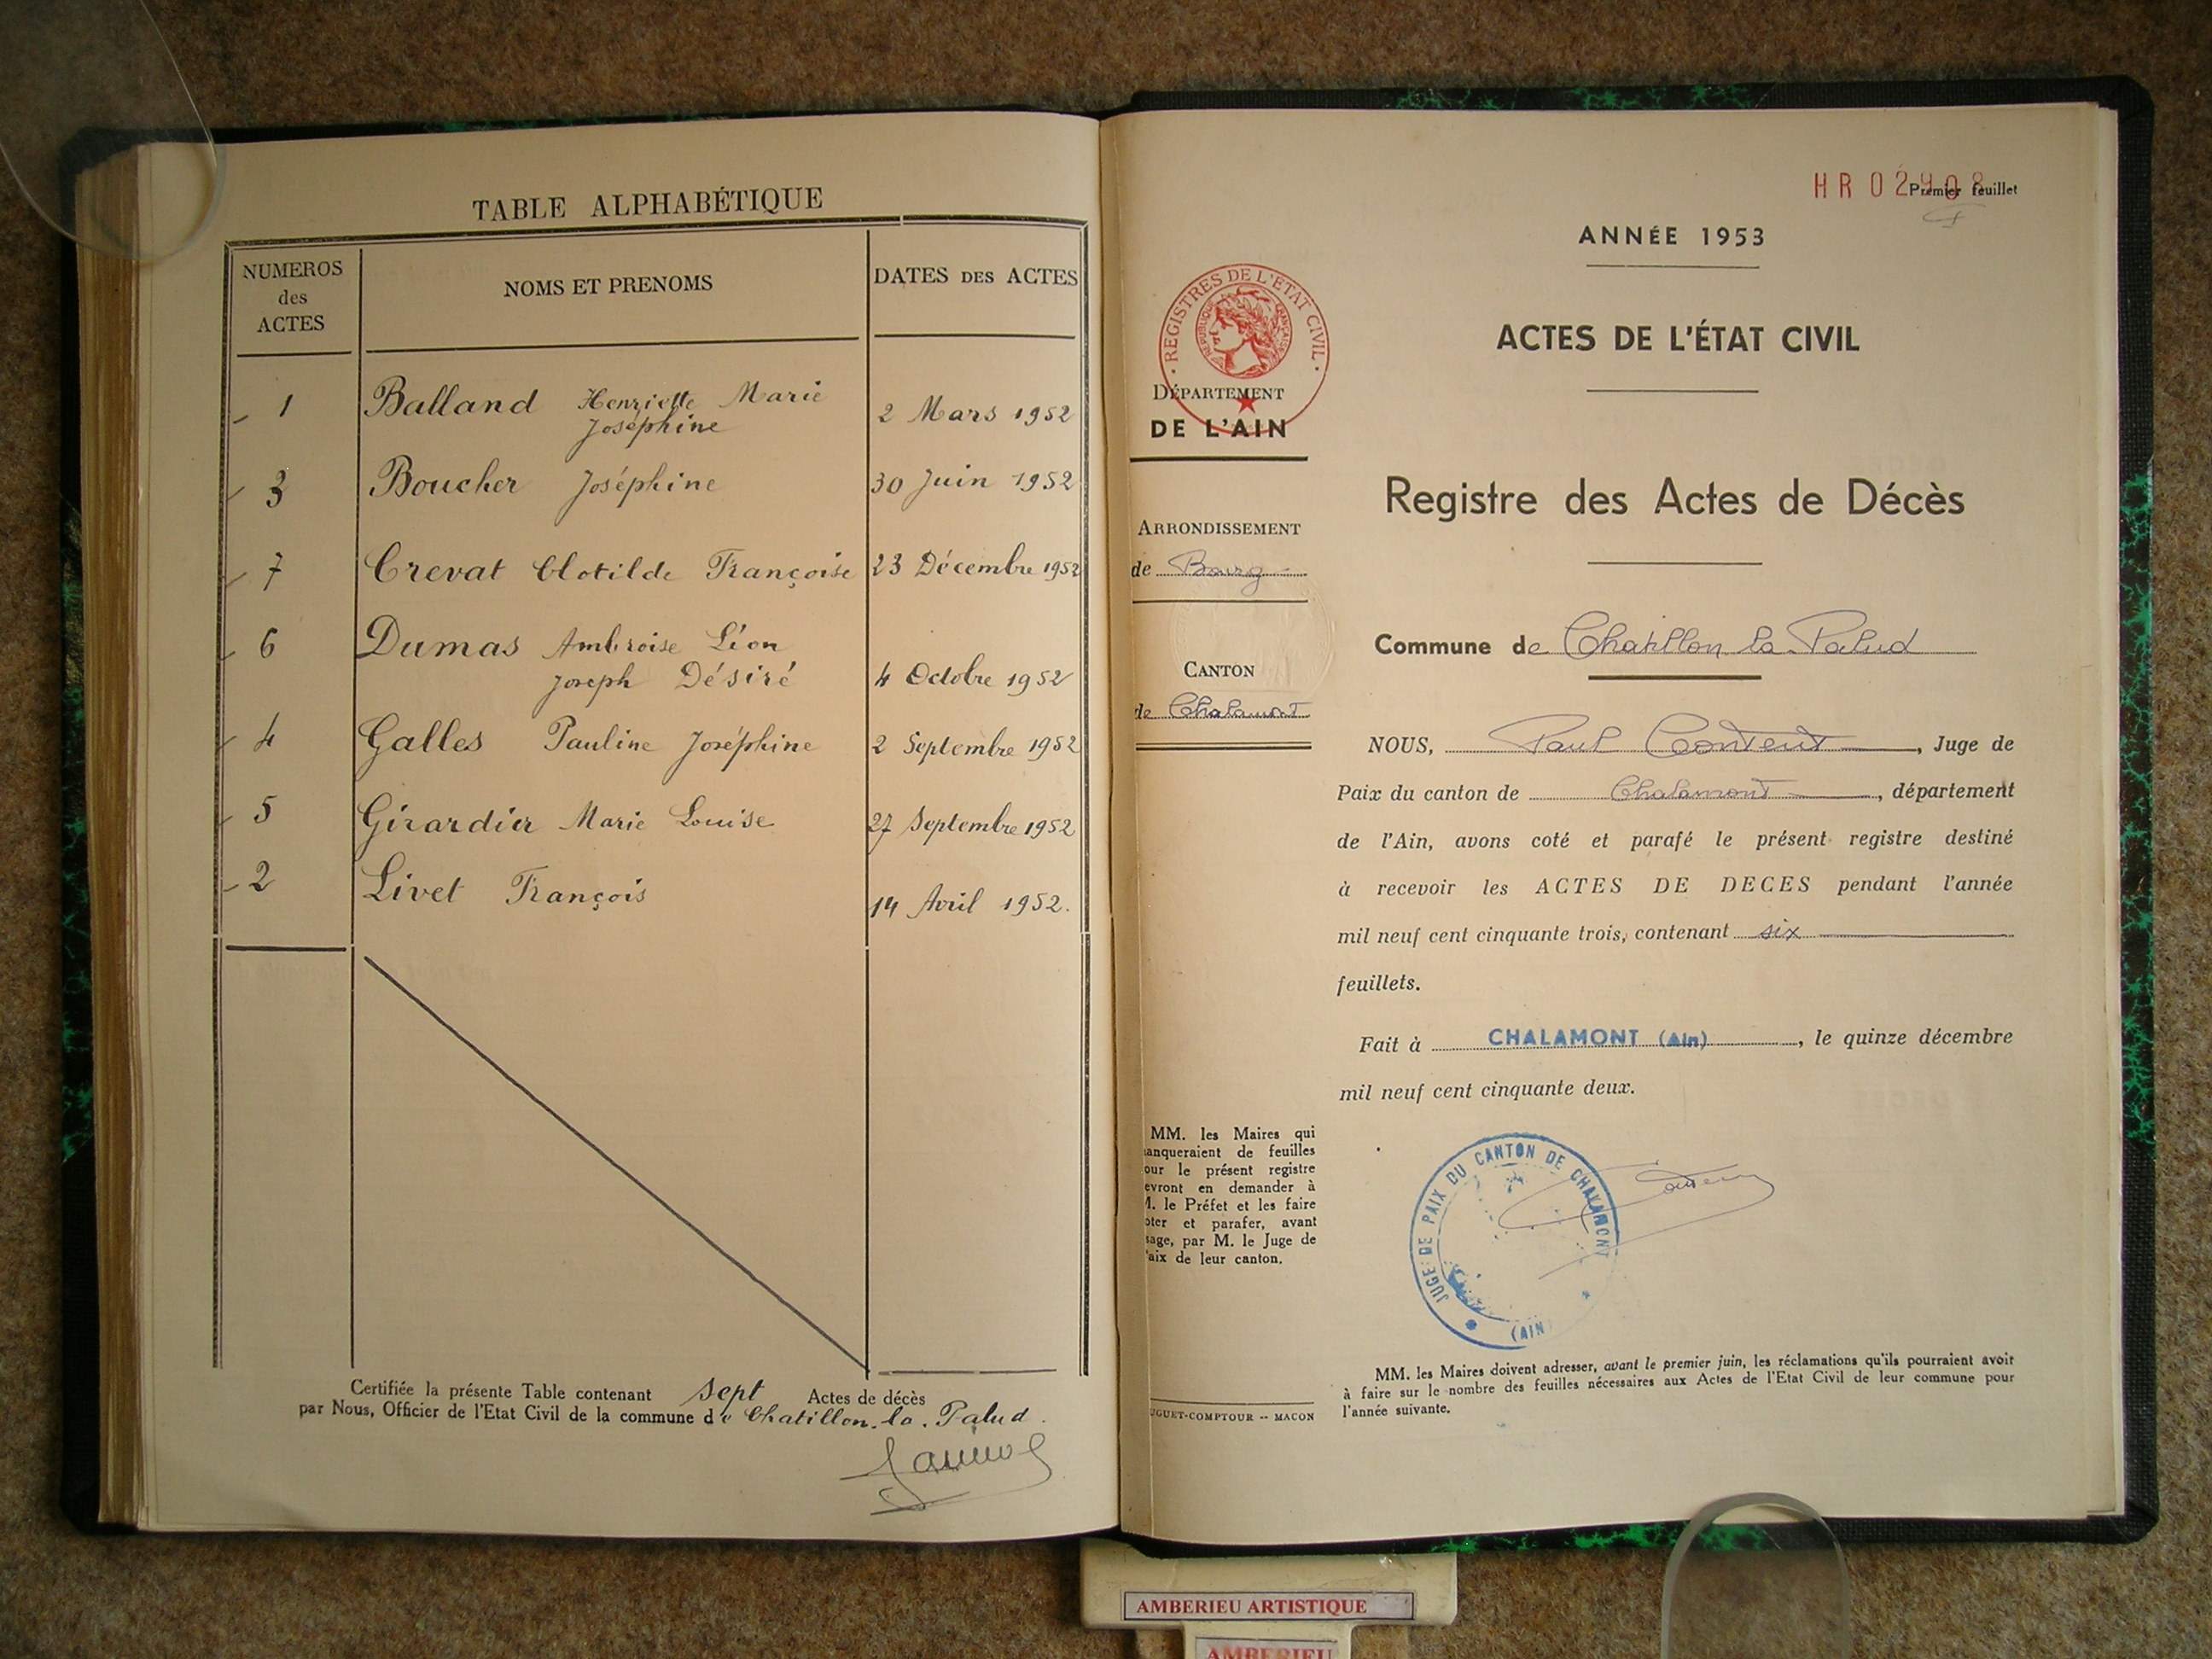 TABLE ALPHABÉTIQUE
NUMEROS
des
ACTES
NOMS ET PRENOMS
DATES DES ACTES
1 Balland Henriette Marie
Joséphine 2 Mars 1952
3 Boucher Joséphine 30 Juin 1952
7 Crevat Clotilde Françoise 23 Décembre 1952
6 Dumas Ambroise Léon
Joseph Désiré 4 Octobre 1952
4 Galles Pauline Joséphine 2 Septembre 1952
5 Girardier Marie Louise 27 Septembre 1952
2 Livet François 14 Avril 1952.
Certifiée la présente Table contenant sept Actes de décès
par Nous, Officier de l'Etat Civil de la commune de Chatillon. la. Palud.
HR 02908
Premier feuillet
ANNÉE 1953
REGISTRES DE L'ETAT CIVIL
REPUBLIQUE FRANÇAISE
ACTES DE L'ÉTAT CIVIL
DÉPARTEMENT
DE L'AIN
Registre des Actes de Décès
ARRONDISSEMENT
de Bourg
Commune de Chatillon la Palud
CANTON
de Chalamont
NOUS, Paul Content, Juge de
Paix du canton de Chalamont, département
de l'Ain, avons coté et parafé le présent registre destiné
à recevoir les ACTES DE DECES pendant l'année
mil neuf cent cinquante trois, contenant six
feuillets.
Fait à CHALAMONT (Ain), le quinze décembre
mil neuf cent cinquante deux.
MM. les Maires qui
anqueraient de feuilles
our le présent registre
evront en demander à
M. le Préfet et les faire
oter et parafer, avant
sage, par M. le Juge de
aix de leur canton.
JUGE DE PAIX DU CANTON DE CHALAMONT
(AIN)
MM. les Maires doivent adresser, avant le premier juin, les réclamations qu'ils pourraient avoir
à faire sur le nombre des feuilles nécessaires aux Actes de l'Etat Civil de leur commune pour
l'année suivante.
UGUET-COMPTOUR -- MACON
AMBERIEU ARTISTIQUE
AMBERIEU